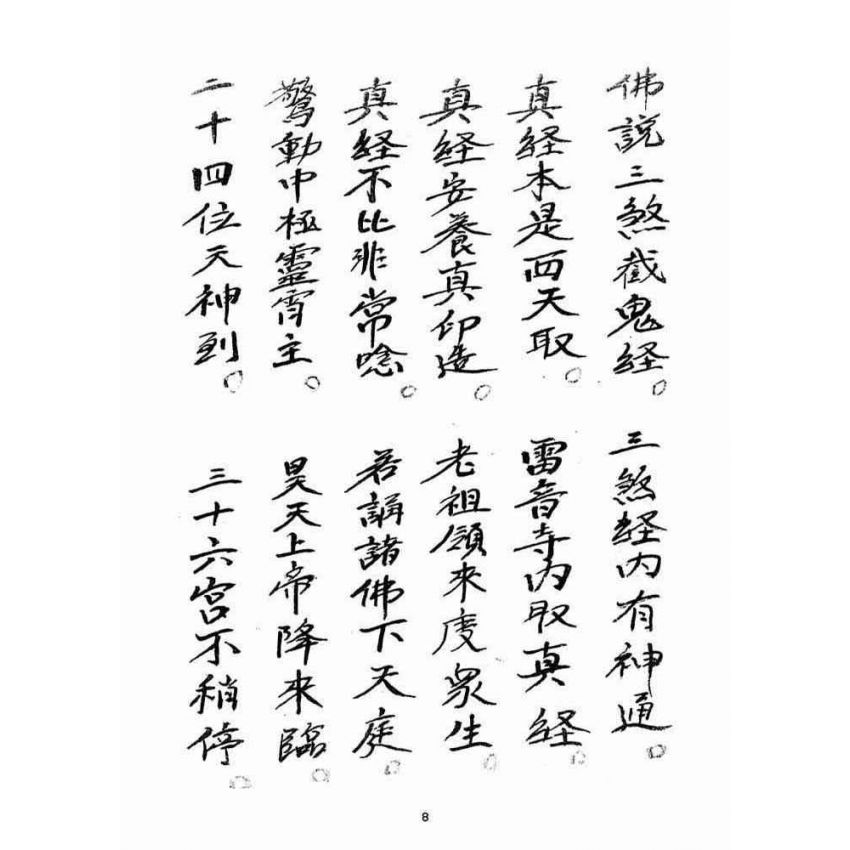 佛說三煞截鬼経。
三煞経内有神通。
真経本是西天取。
雷音寺内取真経。
真経安養真印造。
老祖領來度眾生。
真経不比非常唸。
若誦諸佛下天庭。
驚動中極靈霄主。
昊天上帝降來臨。
二十四位天神到。
三十六宮不稍停。
8